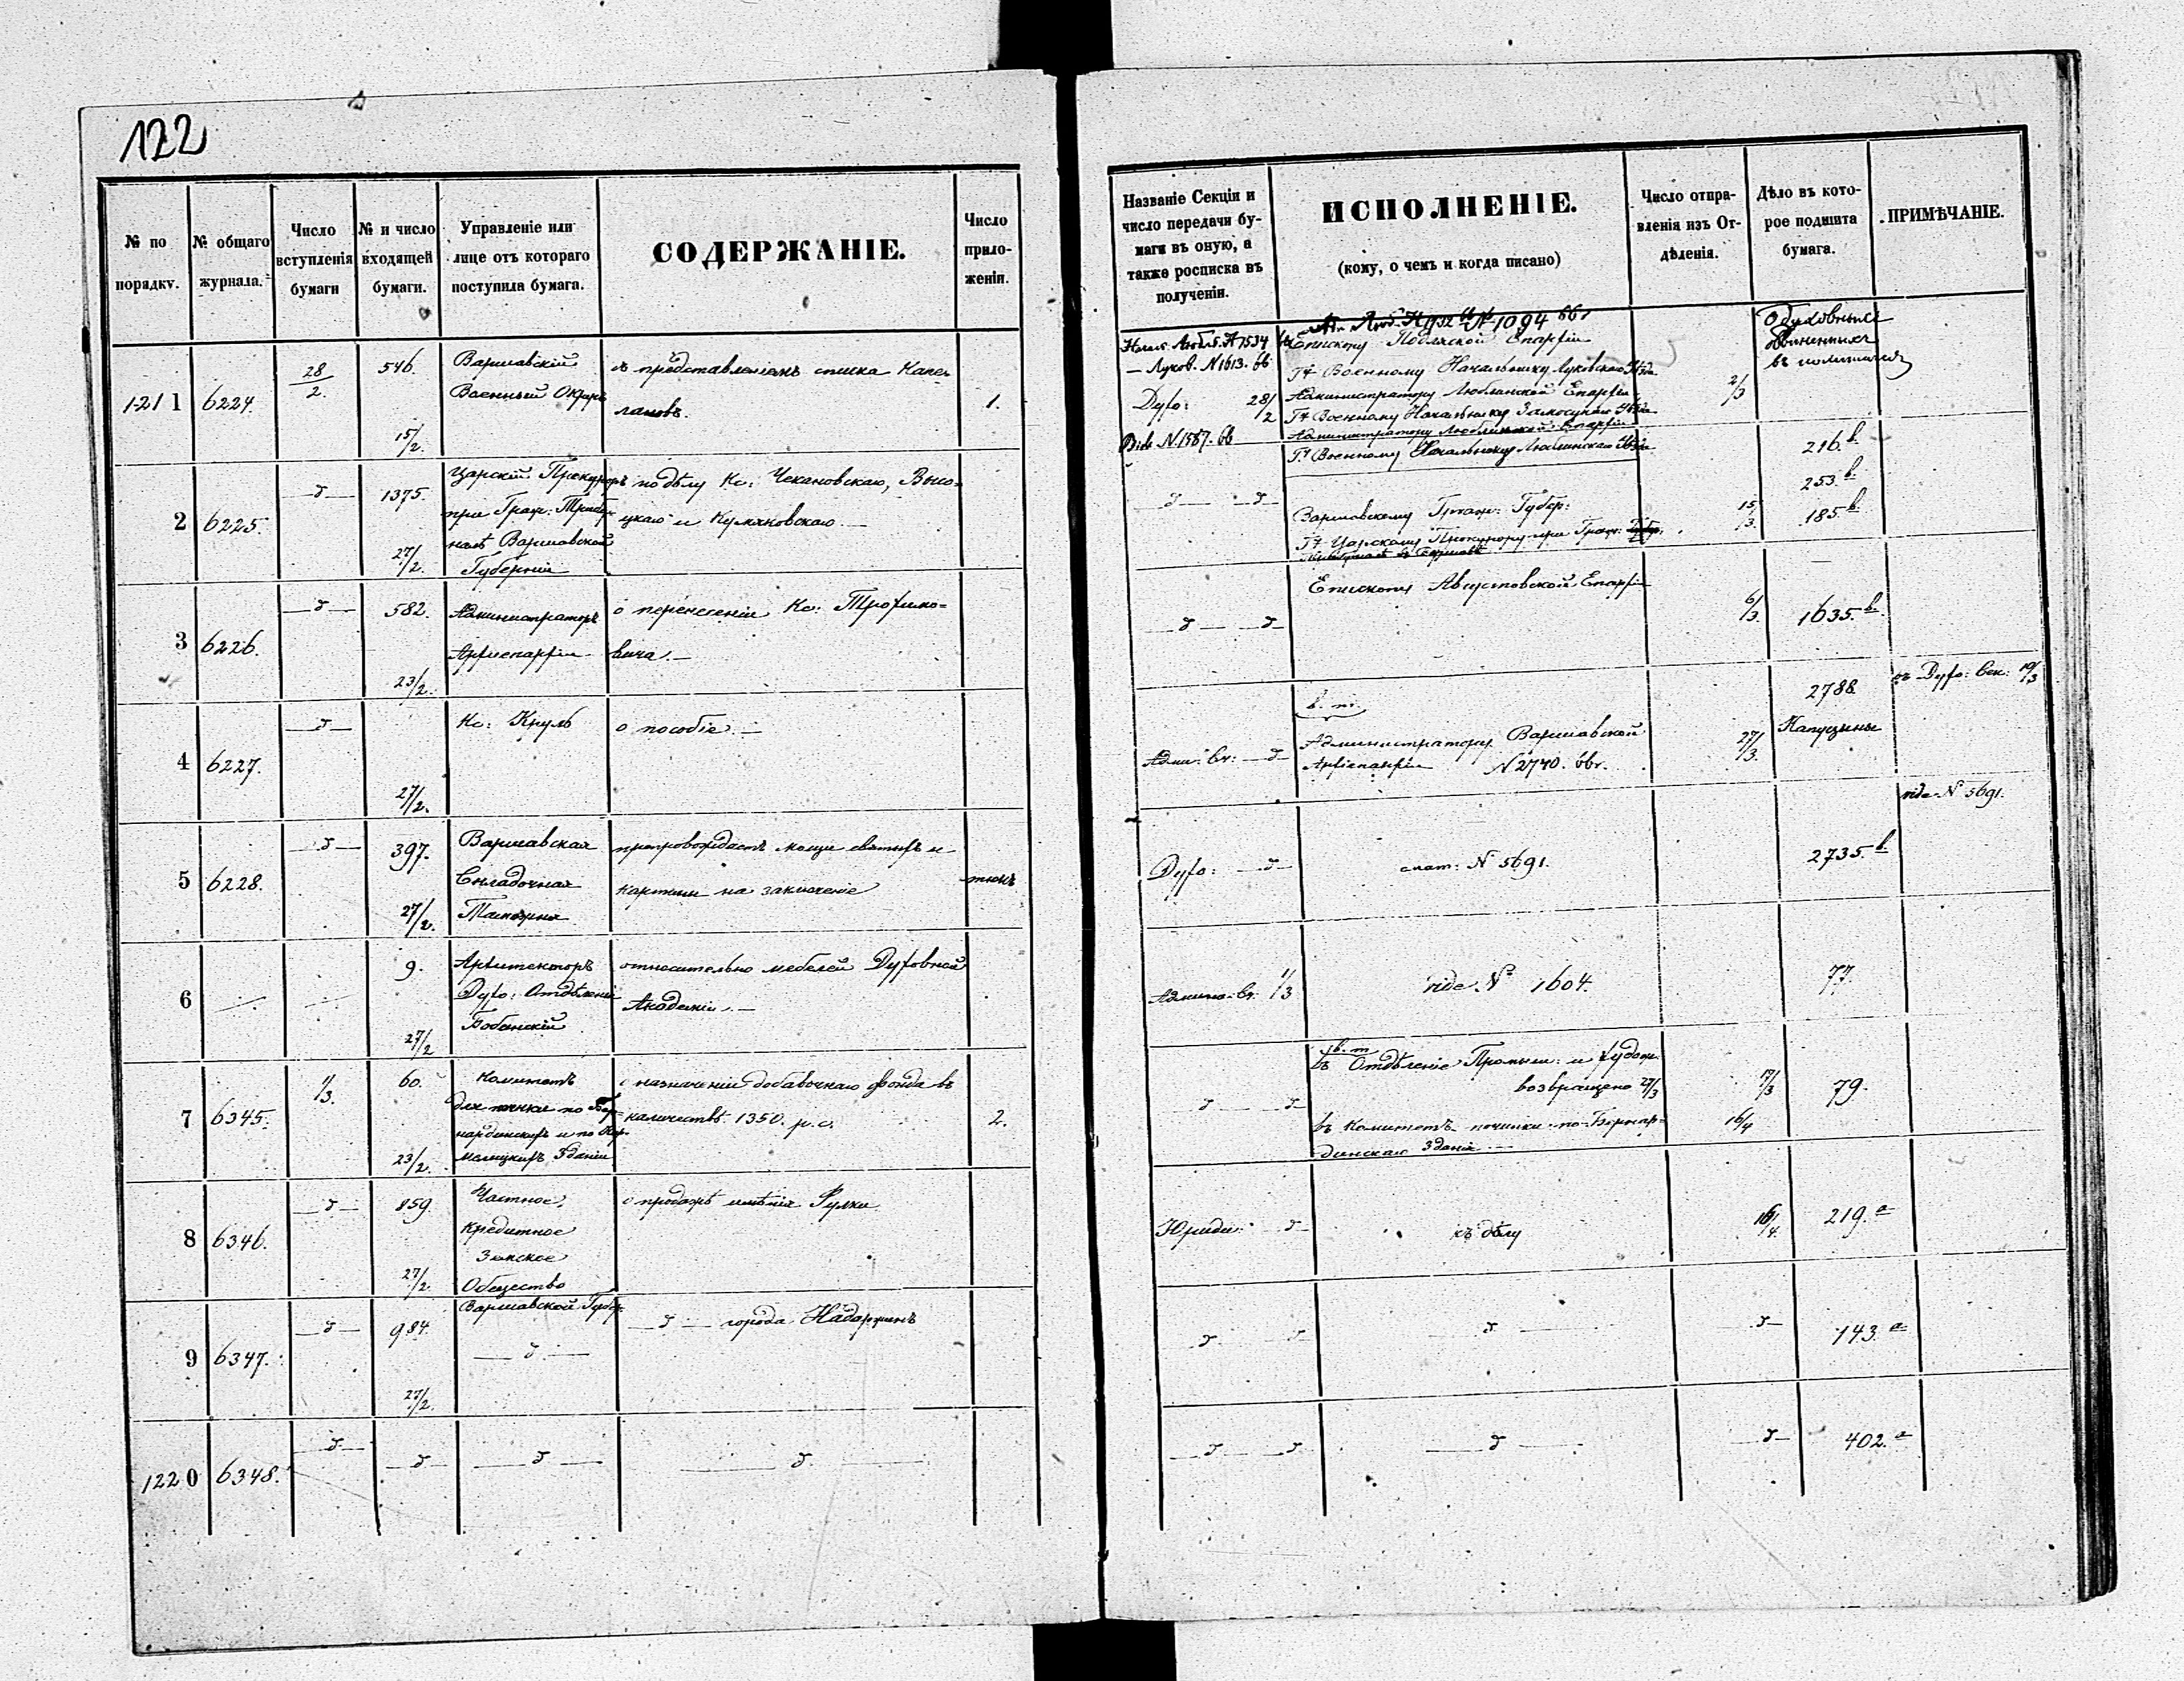 122
№ по порядку.
№ общаго журнала.
Число вступленія бумаги
№ и число входящей бумаги.
Управленіе или лице отъ котораго поступила бумага.
СОДЕРЖАНІЕ.
Число прило-
женіи.
1211
6224.
28/2.
546.
15/2.
Варшавскій
Военный Округъ
съ представленіемъ списка Капел
лановъ.
1.
2
6225.
d
1375.
27/2.
Царскій Прокуроръ
при Граж: Трибу-
налѣ Варшавской
Губерніи
по дѣлу Кс: Чекановскаго, Высо-
цкаго и Кулаковскаго.
3
6226.
d
582.
23/2.
Администраторъ
Архіепархіи
о перенесеніи Кс: Трофимо-
вича.
4
6227.
d
27/2.
Кс: Круль
о пособіе.
5
6228.
d
397.
27/2.
Варшавская
Складочная
Таможня
препровождаетъ мощи святыхъ и
картины на заключеніе
тюкъ
6
9.
27/2
Архитекторъ
Духо: Отдѣленія
относительно мебелей Духовной
Академіи.
7
6345.
1/3.
60.
23/2.
Комитетъ
для починки по Бер-
нардинскихъ и по Кар-
мелицкихъ Зданіи
о назначеніи добавочнаго фонда въ
количествѣ 1350. р.с.
2.
8
6346.
d
859.
27/2.
Частное,
Кредитное
Земское
Общество
Варшавской Губер.
о продажѣ имѣнія Фулки
9
6347.
d
984.
27/2.
d
d города Надаржинъ
1220
6348.
d
d
d
d
Названіе Секціи и
число передачи бу-
маги въ оную, а
также росписка въ
полученіи.
ИСПОЛНЕНІЕ.
(кому, о чемъ и когда писано)
Число отпра-
вленія изъ От-
дѣленія.
Дѣло въ кото-
рое подшита
бумага.
ПРИМѢЧАНІЕ.
№ 1094
N 1534
Луков. N 1613. 66
Духо: 28/2
Vide N. 1587. 66
Епископу Подляской Епархіи
Г. Военному Начальнику Луковскаго Уѣзда
Администратору Люблинской Епархіи
Г. Военному Начальнику Замосцкаго Уѣзда
Администратору Люблинской Епархіи
Г. Военному Начальнику Люблинскаго Уѣзда
2/3
О духовныхъ
обвиненныхъ
216.b
253.b
185.b
d d
Варшавскому Граж: Губер:
Г. Царскому Прокурору при Граж:
15/3.
d d
Епископу Августовской Епархіи
6/3.
1635.b
Адми: Ск: d
в. т.
Администратору Варшавской
Архіепархіи N 2740. 66г.
27/3.
2788
Капуцины
въ Духо: Сек: 19/3
Духо: d
смот: N 5691.
2735.b
vide N 5691.
1/3
vide N 1604.
77.
d d
въ Отдѣленіе Промыш: и Художе.
возвращено 27/3
въ Комитетъ починки по-Бернар-
динскаго Зданія
17/3
16/4
79.
Юриди: d
къ дѣлу
16/4.
219.a
d d
d
d
143.a
d d
d
d
402.a